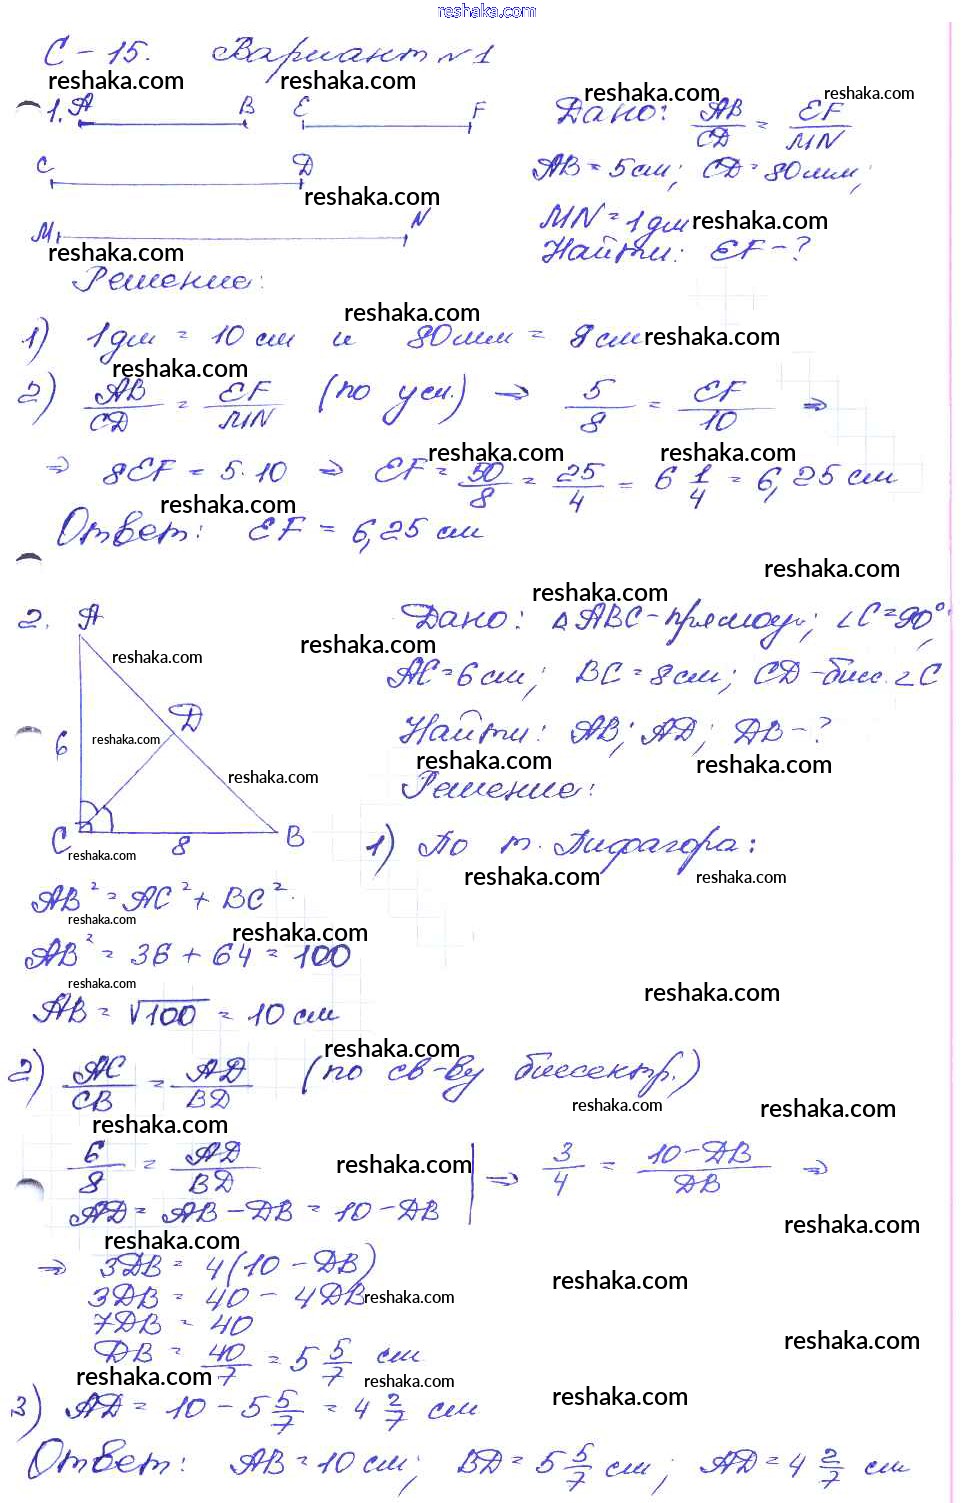 reshaka.com
С-15. Вариант №1
reshaka.com reshaka.com reshaka.com reshaka.com
1. A B E F Дано: AB/CD = EF/MN
C D AB = 5см; CD = 80мм;
reshaka.com
MN = 1дм reshaka.com
M N Найти: EF - ?
reshaka.com
Решение:
reshaka.com
1) 1дм = 10 см и 80мм = 8см reshaka.com
reshaka.com
2) AB/CD = EF/MN (по усл.) ⇒ 5/8 = EF/10 ⇒
reshaka.com reshaka.com
⇒ 8EF = 5·10 ⇒ EF = 50/8 = 25/4 = 6 1/4 = 6,25 см
reshaka.com
Ответ: EF = 6,25 см
reshaka.com
reshaka.com
2. A Дано: △ABC - прямоуг.; ∠C = 90°;
reshaka.com reshaka.com
AC = 6см; BC = 8см; CD - бисс. ∠C
D
6 reshaka.com Найти: AB; AD; DB - ?
reshaka.com reshaka.com reshaka.com
Решение:
C 8 B 1) По т. Пифагора:
reshaka.com reshaka.com reshaka.com
AB² = AC² + BC².
reshaka.com reshaka.com
AB² = 36 + 64 = 100
reshaka.com reshaka.com
AB = √100 = 10 см
reshaka.com
2) AC/CB = AD/BD (по св-ву биссектр.)
reshaka.com reshaka.com
reshaka.com
6/8 = AD/BD reshaka.com ⇒ 3/4 = 10-DB/DB ⇒
AD = AB - DB = 10 - DB
reshaka.com reshaka.com
⇒ 3DB = 4(10 - DB)
reshaka.com
3DB = 40 - 4DB reshaka.com
7DB = 40
reshaka.com
DB = 40/7 = 5 5/7 см
reshaka.com reshaka.com reshaka.com
3) AD = 10 - 5 5/7 = 4 2/7 см
Ответ: AB = 10 см; BD = 5 5/7 см; AD = 4 2/7 см